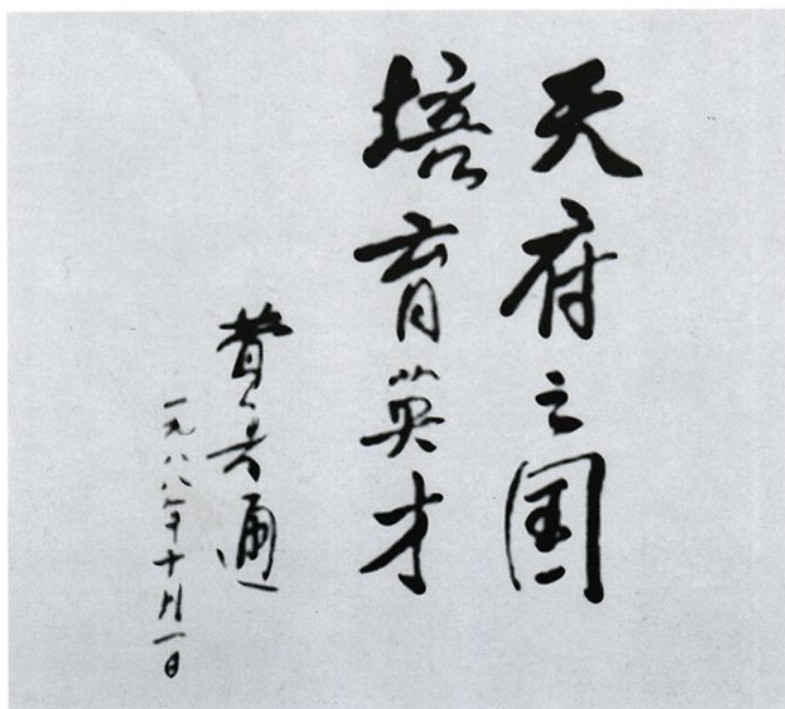 天府之国
培育英才
费孝通
一九八八年十月一日